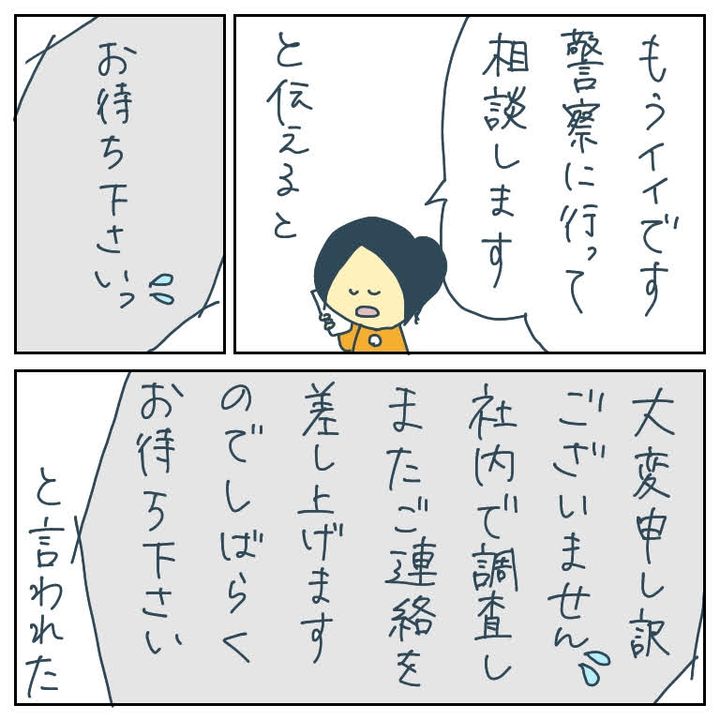 もうイイです
警察に行って
相談します
と伝えると
お待ち下さいっ
大変申し訳
ございません
社内で調査し
またご連絡を
差し上げます
のでしばらく
お待ち下さい
と言われた